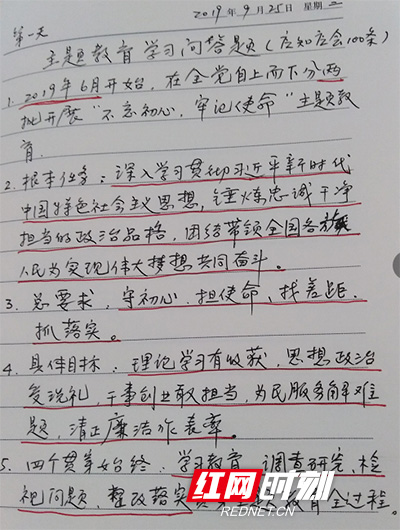 2019年9月25日 星期三
第一天
主题教育学习问答题(应知应会100条)
1. 2019年6月开始,在全党自上而下分两
批开展"不忘初心,牢记使命"主题教
育.
2. 根本任务:深入学习贯彻习近平新时代
中国特色社会主义思想,锤炼忠诚干净
担当的政治品格,团结带领全国各族
人民为实现伟大梦想共同奋斗。
3. 总要求,守初心、担使命、找差距、
抓落实。
4. 具体目标:理论学习有收获,思想政治
受洗礼,干事创业敢担当,为民服务解难
题,清正廉洁作表率。
5. 四个贯穿始终:学习教育、调查研究、检
视问题、整改落实 教育全过程.
红网时刻
REDNET.CN